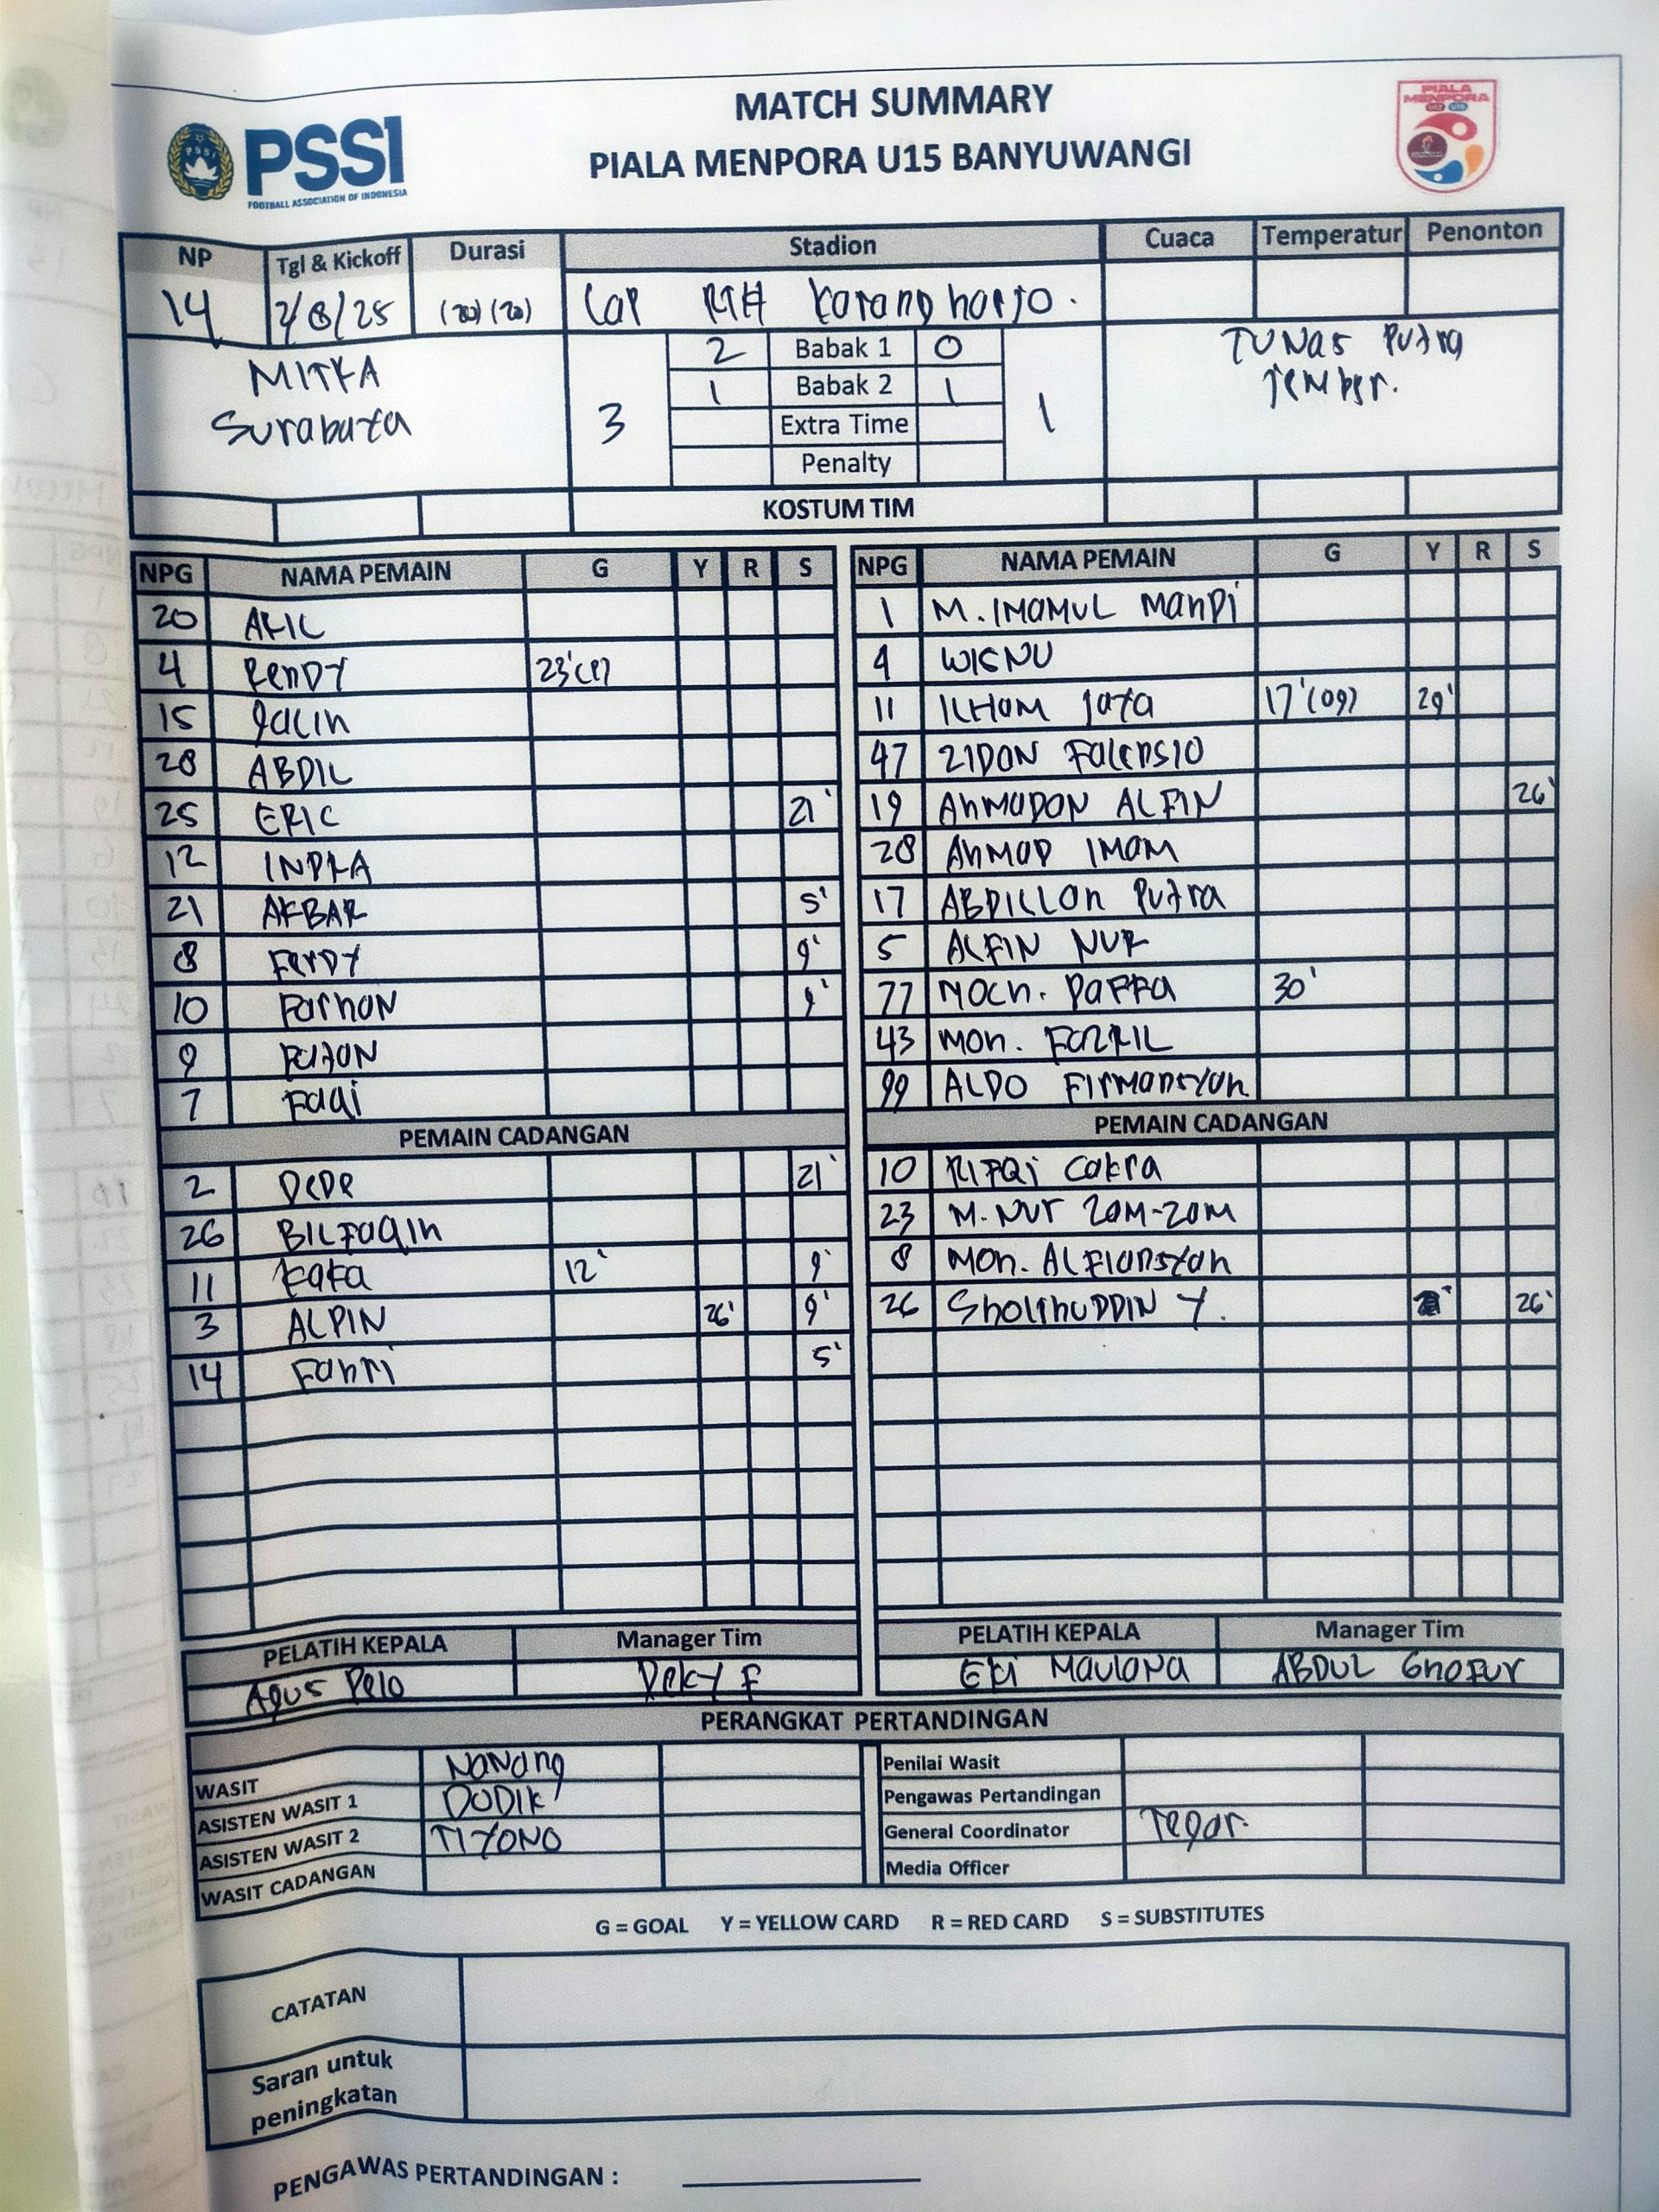 MATCH SUMMARY
PIALA MENPORA U15 BANYUWANGI
PSSI
FOOTBALL ASSOCIATION OF INDONESIA
PIALA
MENPORA
NP Tgl & Kickoff Durasi Stadion Cuaca Temperatur Penonton
14 2/8/25 (20) (20) Lap RTH Karangharjo.
MITRA
Surabaya
3
2 Babak 1 0
1 Babak 2 1
Extra Time
Penalty
1
TUNAS Putra
Jember.
KOSTUM TIM
NPG NAMA PEMAIN G Y R S
20 AFIL
4 RENDY 23'(P)
15 Galih
28 ABDIL
25 ERIC 21'
12 INDRA
21 AKBAR 5'
8 FerDY 9'
10 FarHAN 9'
9 FaTAN
7 Faqi
PEMAIN CADANGAN
2 DeDe 21'
26 BILFaQih
11 KaKa 12' 9'
3 ALPIN 26' 9'
14 Fahri 5'
NPG NAMA PEMAIN G Y R S
1 M. IMAMUL MahDi
4 WISNU
11 ILHAM Jaya 17'(og) 29'
47 ZIDAN FaLensIO
19 AhMaDAN ALFIN 26'
28 AhMAD IMAM
17 ABDILLAh Putra
5 ALFIN NUR
77 Moch. DaFFa 30'
43 Moh. FaZRIL
99 ALDO FIrMansYah
PEMAIN CADANGAN
10 RIFQi Cakra
23 M. Nur ZAM-ZAM
8 Moh. ALFIansYah
26 SholihuDDIN Y. 26'
PELATIH KEPALA Manager Tim
Agus Pelo Deky F
PELATIH KEPALA Manager Tim
Eki MauLANA ABDUL GhoFur
PERANGKAT PERTANDINGAN
WASIT NaNang
ASISTEN WASIT 1 DODIK
ASISTEN WASIT 2 TIYONO
WASIT CADANGAN
Penilai Wasit
Pengawas Pertandingan
General Coordinator Tegar.
Media Officer
G = GOAL Y = YELLOW CARD R = RED CARD S = SUBSTITUTES
CATATAN
Saran untuk
peningkatan
PENGAWAS PERTANDINGAN :